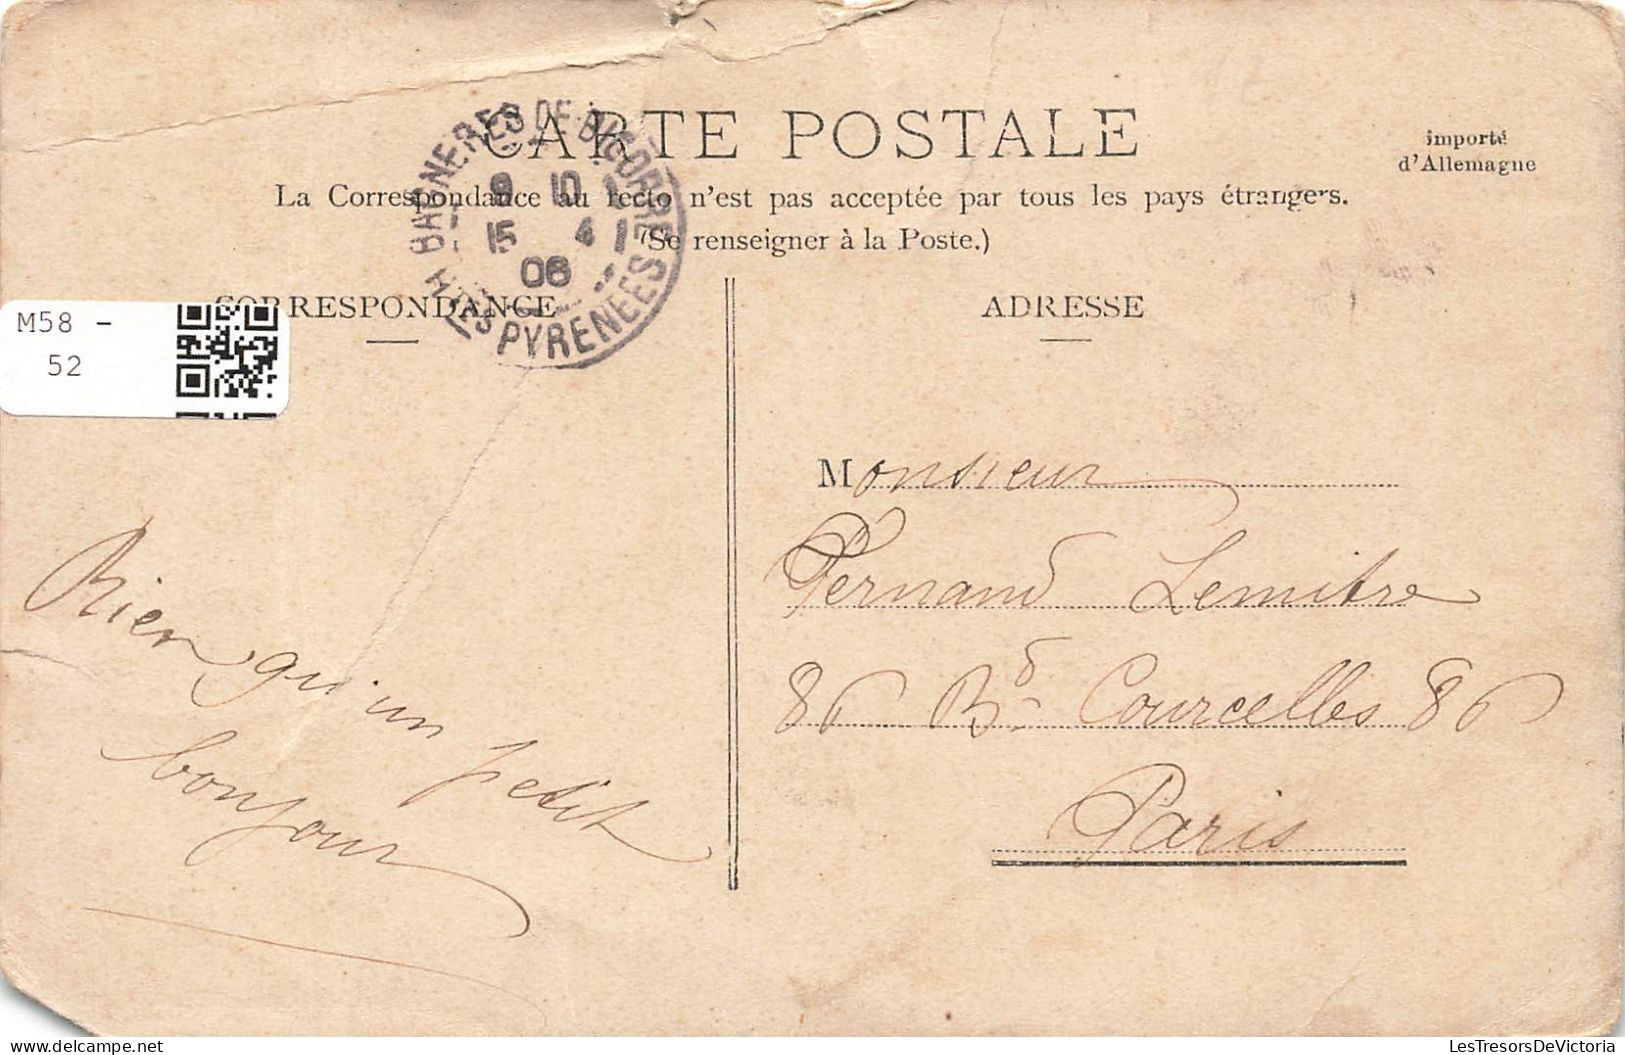 CARTE POSTALE
importé
d'Allemagne
La Correspondance au recto n'est pas acceptée par tous les pays étrangers.
(Se renseigner à la Poste.)
BAGNERES-DE-BIGORRE
9 10
15 4
06
HTES PYRENEES
CORRESPONDANCE
ADRESSE
M58 -
52
Rien qu'un petit
bonjour
Monsieur
Fernand Lemitre
86 Bd Courcelles 86
Paris
LesTresorsDeVictoria